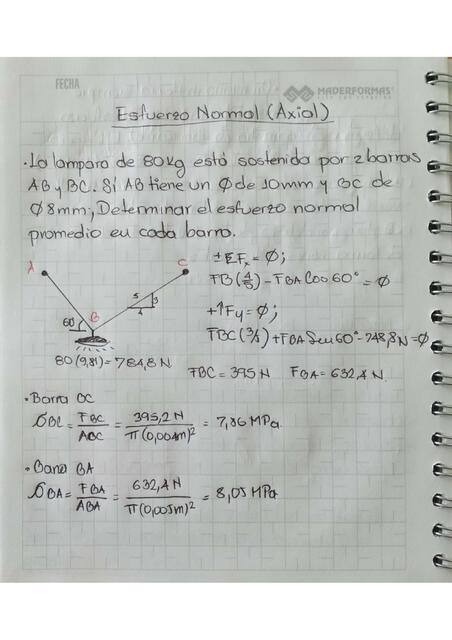 FECHA
MADERFORMAS
Esfuerzo Normal (Axial)
· La lampara de 80 kg está sostenida por 2 barras
AB y BC. Sí AB tiene un Ø de 10mm y BC de
Ø 8mm; Determinar el esfuerzo normal
promedio eu cada barro.
A
C
B
60°
5
3
4
80 (9,81) = 784,8 N
±ΣFx = Ø;
FB (4/5) - FBA Cos 60° = Ø
+↑Fy = Ø;
FBC (3/5) + FBA Sen 60° - 748,8N = Ø
FBC = 395 N FBA = 632,4 N.
· Barra BC
σBC = FBC/ABC = 395,2 N/π(0,004m)² = 7,86 MPa
· Barra BA
σBA = FBA/ABA = 632,4 N/π(0,005m)² = 8,05 MPa